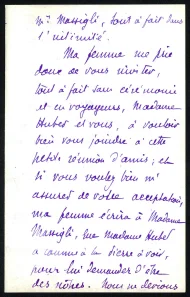 Mr. Massigli, tout à fait dans
l'intimité.
Ma femme me prie
donc de vous inviter,
tout à fait sans cérémonie
et en voyageurs, Madame
Hubert et vous, à vouloir
bien vous joindre à cette
petite réunion d'amis; et
si vous voulez bien m'
assurer de votre acceptation,
ma femme écrira à Madame
Massigli, que madame Hubert
a comme à la
pour lui demander d'être
des nôtres. Nous ne devions